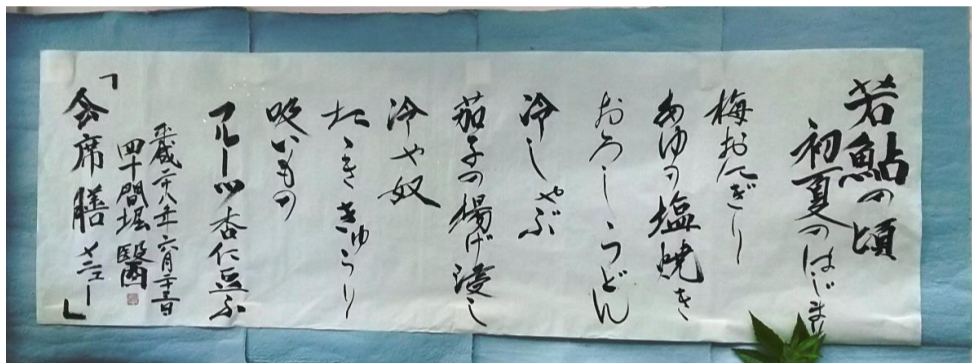 若鮎の頃
初夏のはじまり
梅おにぎり
あゆの塩焼き
おろしうどん
冷しゃぶ
茄子の揚げ浸し
冷や奴
たゝききゅうり
吸いもの
フルーツ杏仁豆ふ
平成二十八年六月二十三日
四十間堀醫
「会席膳メニュー」